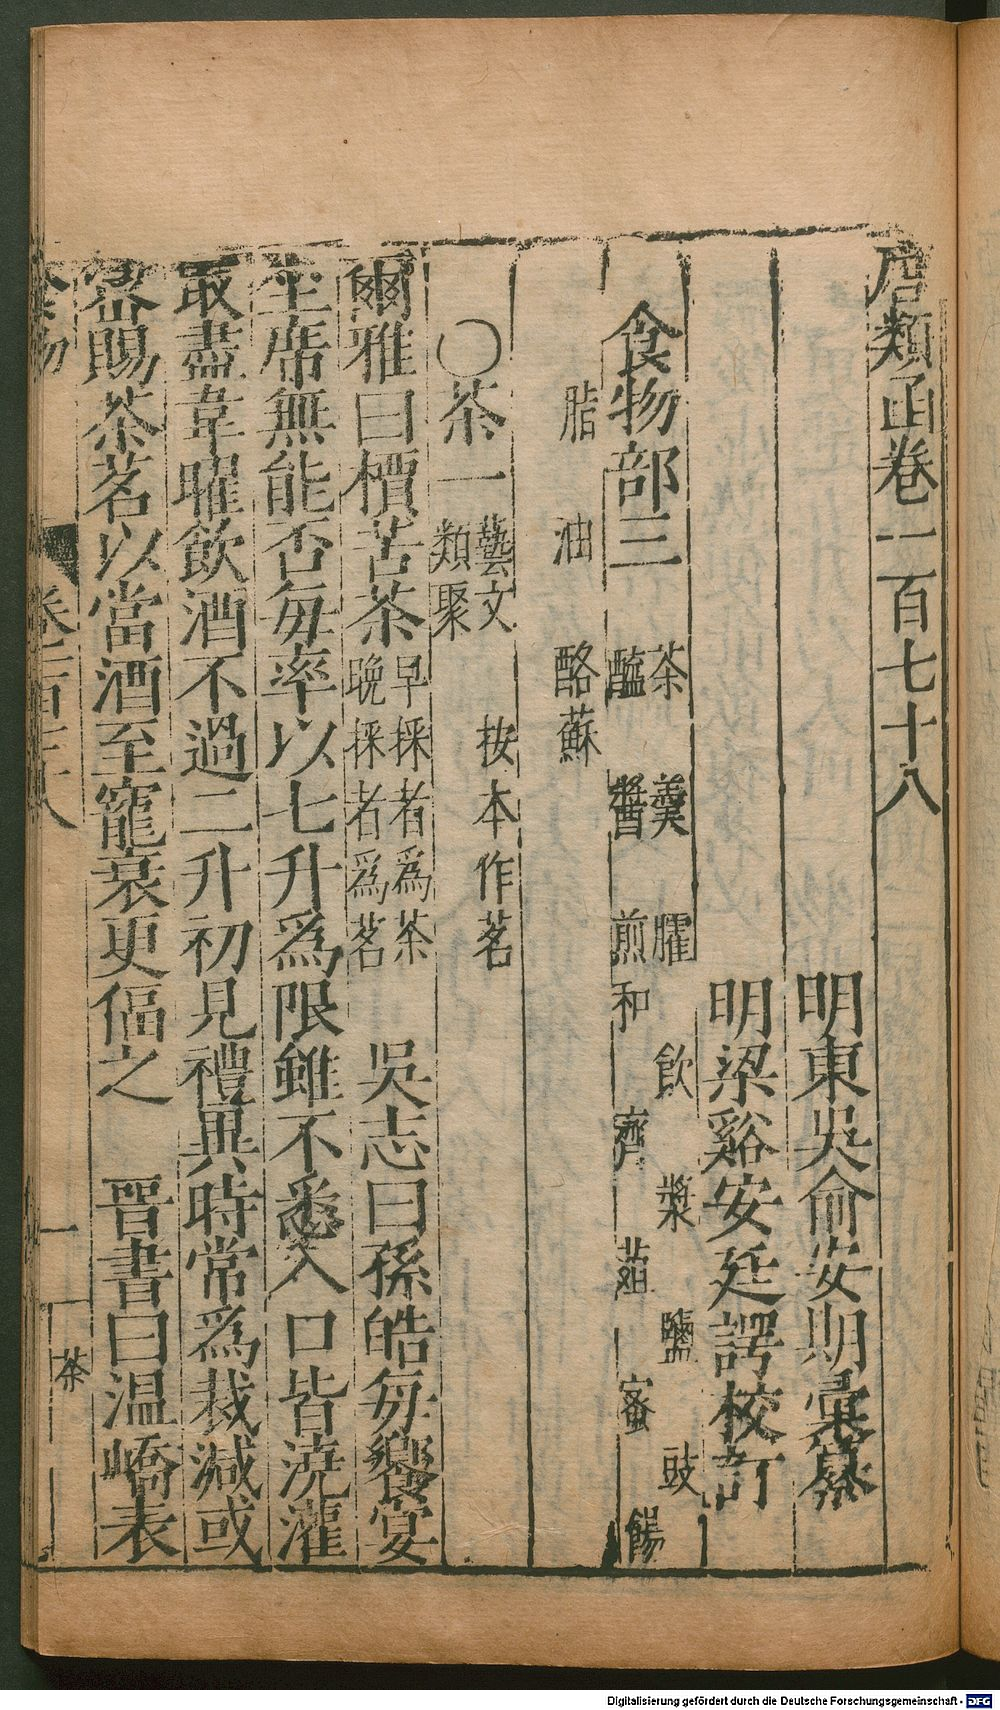 唐類函卷一百七十八
明東吳俞安期彙纂
明梁谿安廷諤校訂
食物部三
茶 羹 臛 飲 漿 鹽 豉
醢 醬 煎和 齊 葅 蜜 餳
脂 油 酪蘇
〇茶一
藝文
類聚
按本作茗
爾雅曰檟苦茶
早採者爲茶
晚採者爲茗
吳志曰孫皓每饗宴
坐席無能否每率以七升爲限雖不悉入口皆澆灌
取盡韋曜飲酒不過二升初見禮異時常爲裁減或
宻賜茶茗以當酒至寵衰更偪之 晉書曰溫嶠表
食物 卷一百七十八 一 茶
Digitalisierung gefördert durch die Deutsche Forschungsgemeinschaft - DFG